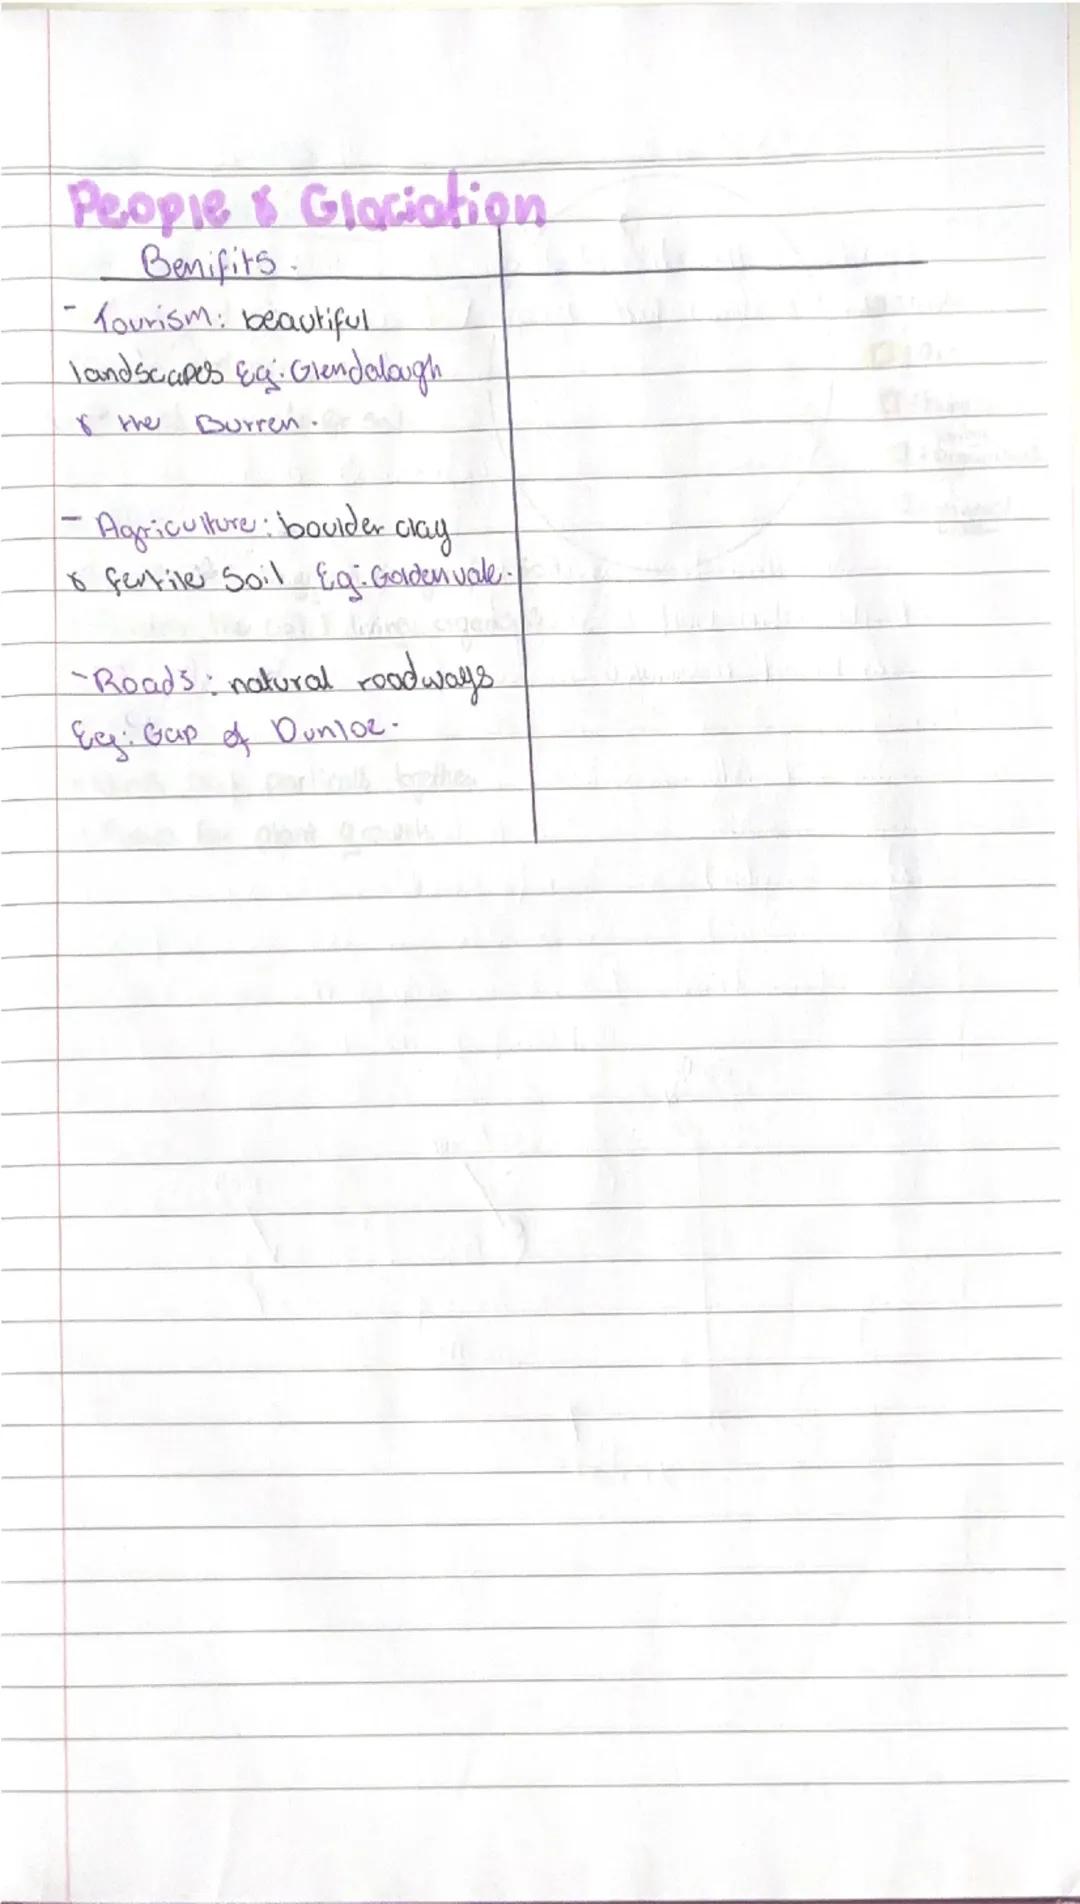 People & Glaciation
Benifits.
- Tourism: beautiful
landscapes Eg: Glendalough
& the Burren.
- Agriculture: boulder clay
& fertile Soil Eg: Golden vale.
- Roads: natural roadways
Eg: Gap of Dunloe.